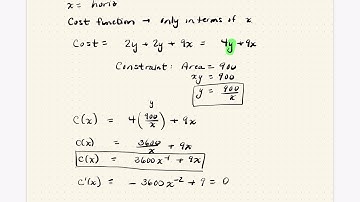 x = horiz
Cost function → only in terms of x
Cost = 2y + 2y + 9x = 4y + 9x
Constraint: Area = 900
xy = 900
y = 900/x
y
C(x) = 4(900/x) + 9x
C(x) = 3600/x + 9x
C(x) = 3600x⁻¹ + 9x
C'(x) = -3600x⁻² + 9 = 0